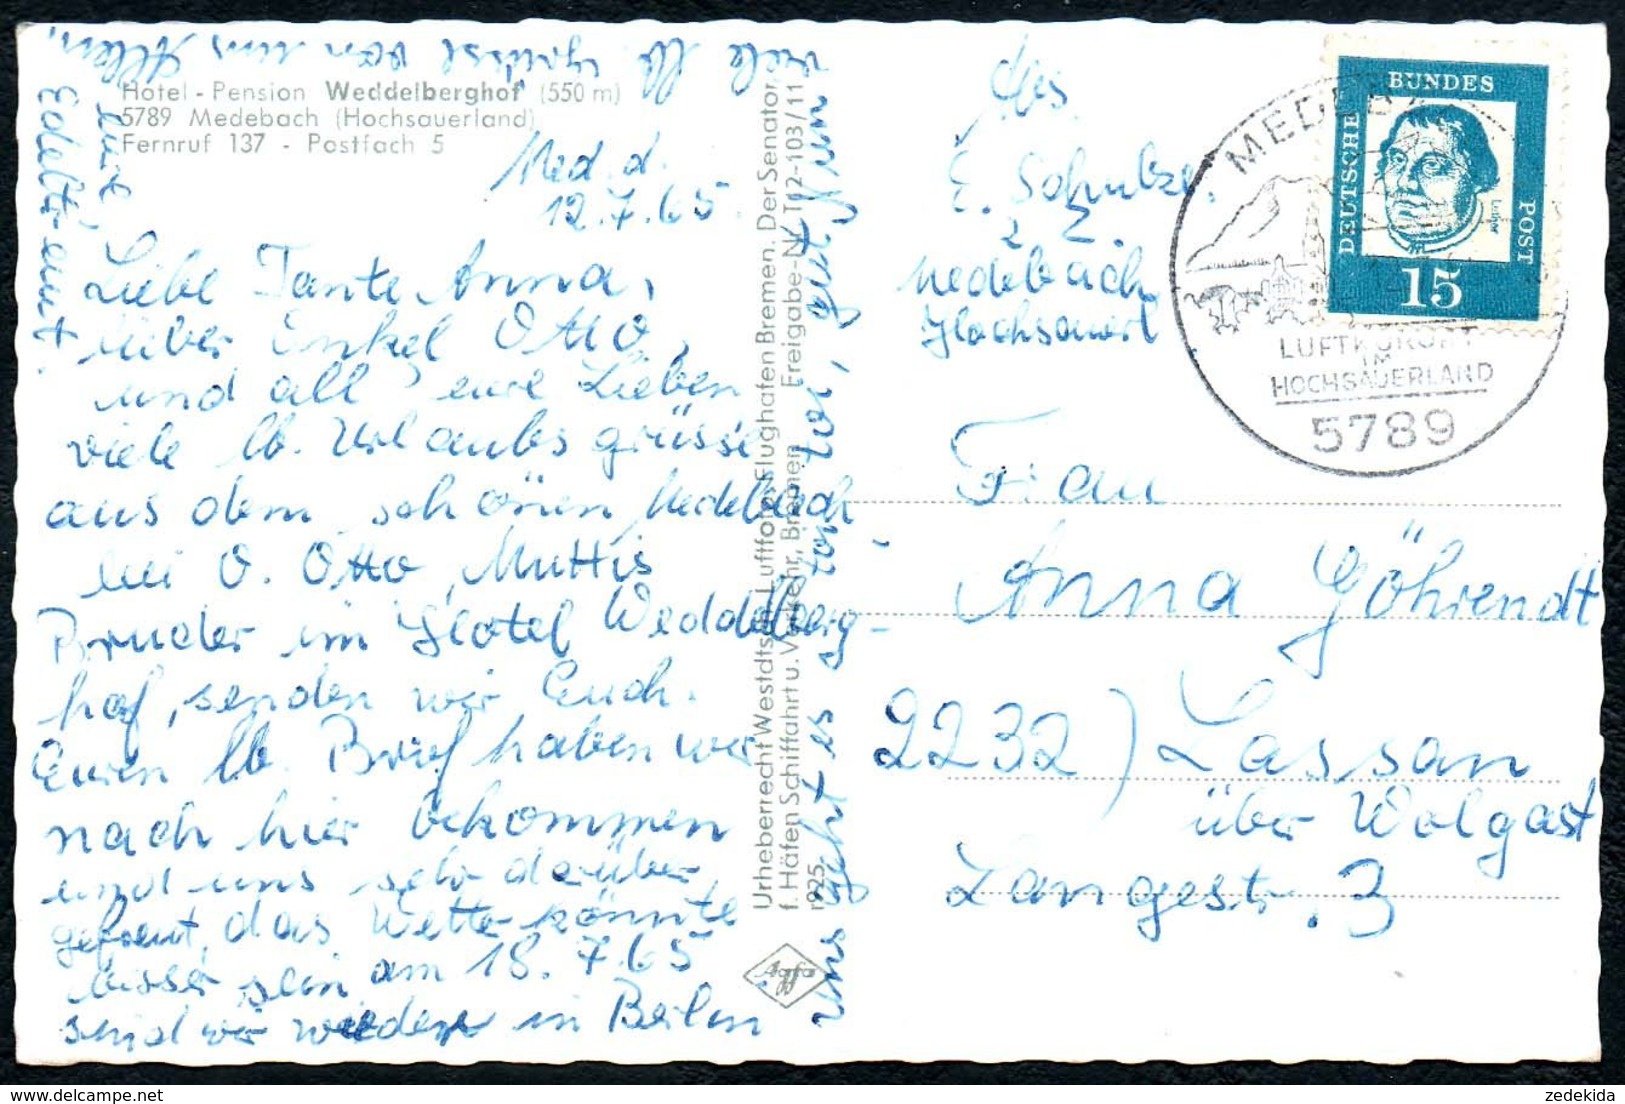 Hotel - Pension Weddelberghof (550 m)
5789 Medebach (Hochsauerland)
Fernruf 137 - Postfach 5
Med. d.
12.7.65.
Liebe Tante Anna,
lieber Onkel Otto,
und all eure Lieben
viele lb. Urlaubsgrüsse
aus dem schönen Medebach
bei O. Otto, Muttis
Bruder im Hotel Weddelberg-
hof, senden wir Euch.
Euren lb. Brief haben wir
nach hier bekommen
und uns sehr darüber
gefreut, das Wetter könnte
besser sein am 18.7.65
sind wir wieder in Berlin
uns geht es
gut, nun
viele lb Grüsse von uns Allen,
eure
Urheberrecht Westdtsch. Luftfoto, Flughafen Bremen. Der Senator
f. Häfen Schiffahrt u. Verkehr, Bremen Freigabe-Nr. T 2-103/11
r925
Agfa
Abs.
E. Schulze,
Medebach
Hochsauerl
DEUTSCHE
BUNDES
POST
Luther
15
MEDEBACH
LUFTKURORT
IM
HOCHSAUERLAND
5789
Frau
Anna Göhrendt
2232) Lassan
über Wolgast
Langestr. 3
zedekida